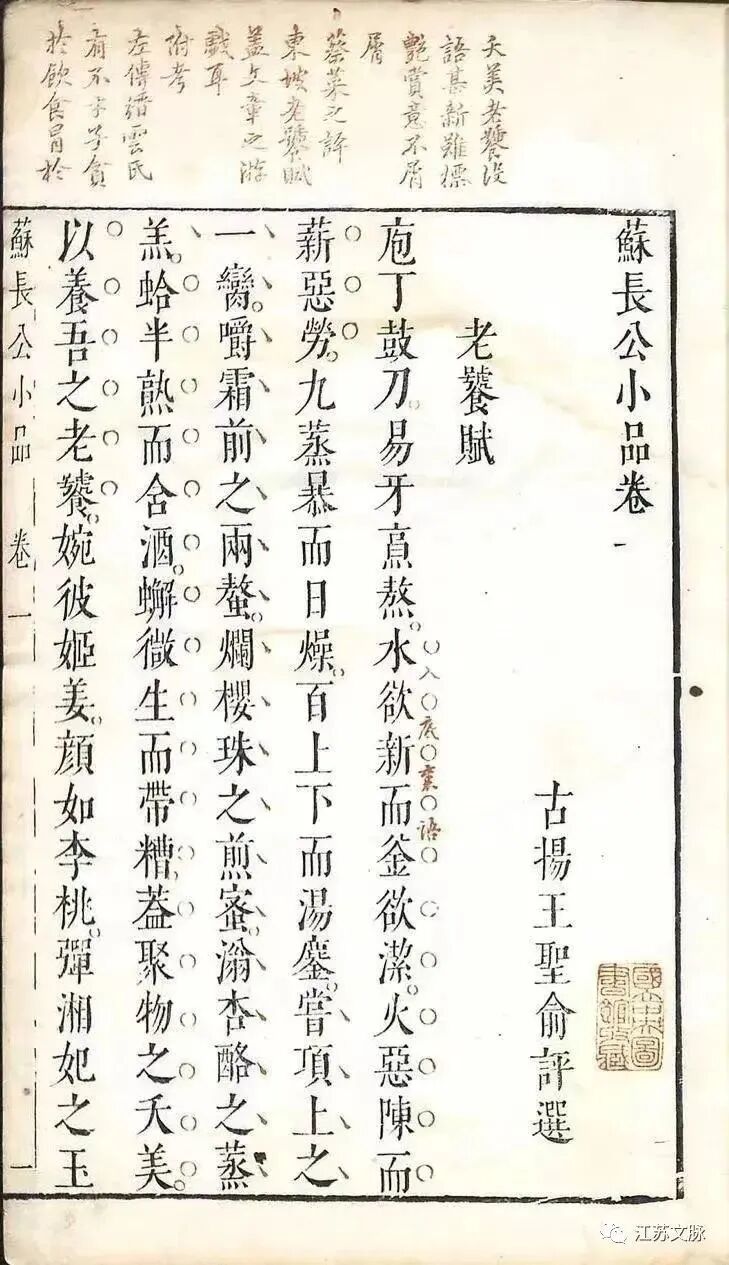 夭美老饕設
語甚新雖標
艷賞意不屑
屑
蔡菜之評
東坡老饕賦
蓋文章之游
戲耳
附考
左傳縉雲氏
有不才子貪
於飲食冒於
蘇長公小品卷一
古揚王聖俞評選
國立中央圖書館收藏
老饕賦
庖丁鼓刀。易牙烹熬。水欲新而釜欲潔。火惡陳而
入底裏語
薪惡勞。九蒸暴而日燥。百上下而湯鏖。嘗項上之
一臠。嚼霜前之兩螯。爛櫻珠之煎蜜。滃杏酪之蒸
羔。蛤半熟而含酒。蠏微生而帶糟。蓋聚物之夭美。
以養吾之老饕。婉彼姬姜。顔如李桃。彈湘妃之玉
蘇長公小品 卷一 一
江苏文脉